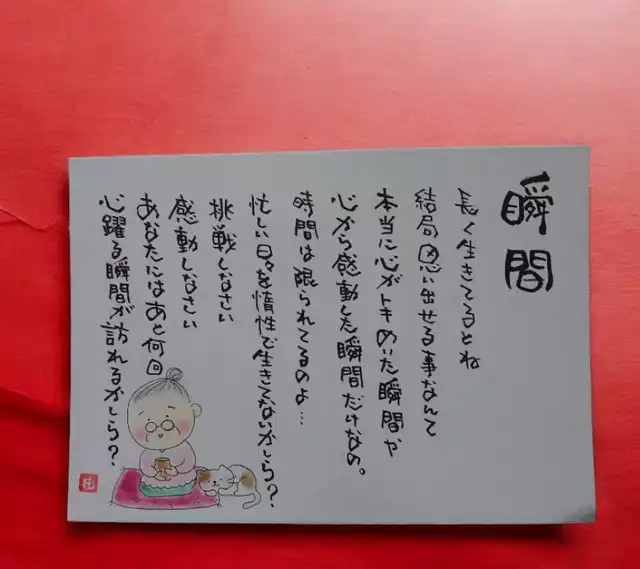 瞬間
長く生きてるとね
結局思い出せる事なんて
本当に心がトキめいた瞬間や
心から感動した瞬間だけなの。
時間は限られてるのよ…
忙しい日々を惰性で生きてないかしら?
挑戦しなさい
感動しなさい
あなたにはあと何回
心躍る瞬間が訪れるかしら?